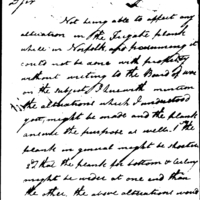 Not being able to effect any
alteration in the Fir gate plank
while in Norfolk and presuming it
could not be done with propriety
without writing to the Board of war
on the subject, I herewith mention
the alterations which I understood
you, might be made and the plank
answer the purpose as well. 1 The
plank in general might be shorter
2d that the plank for bottom &
might be wider at one end than
the other, the above alterations would